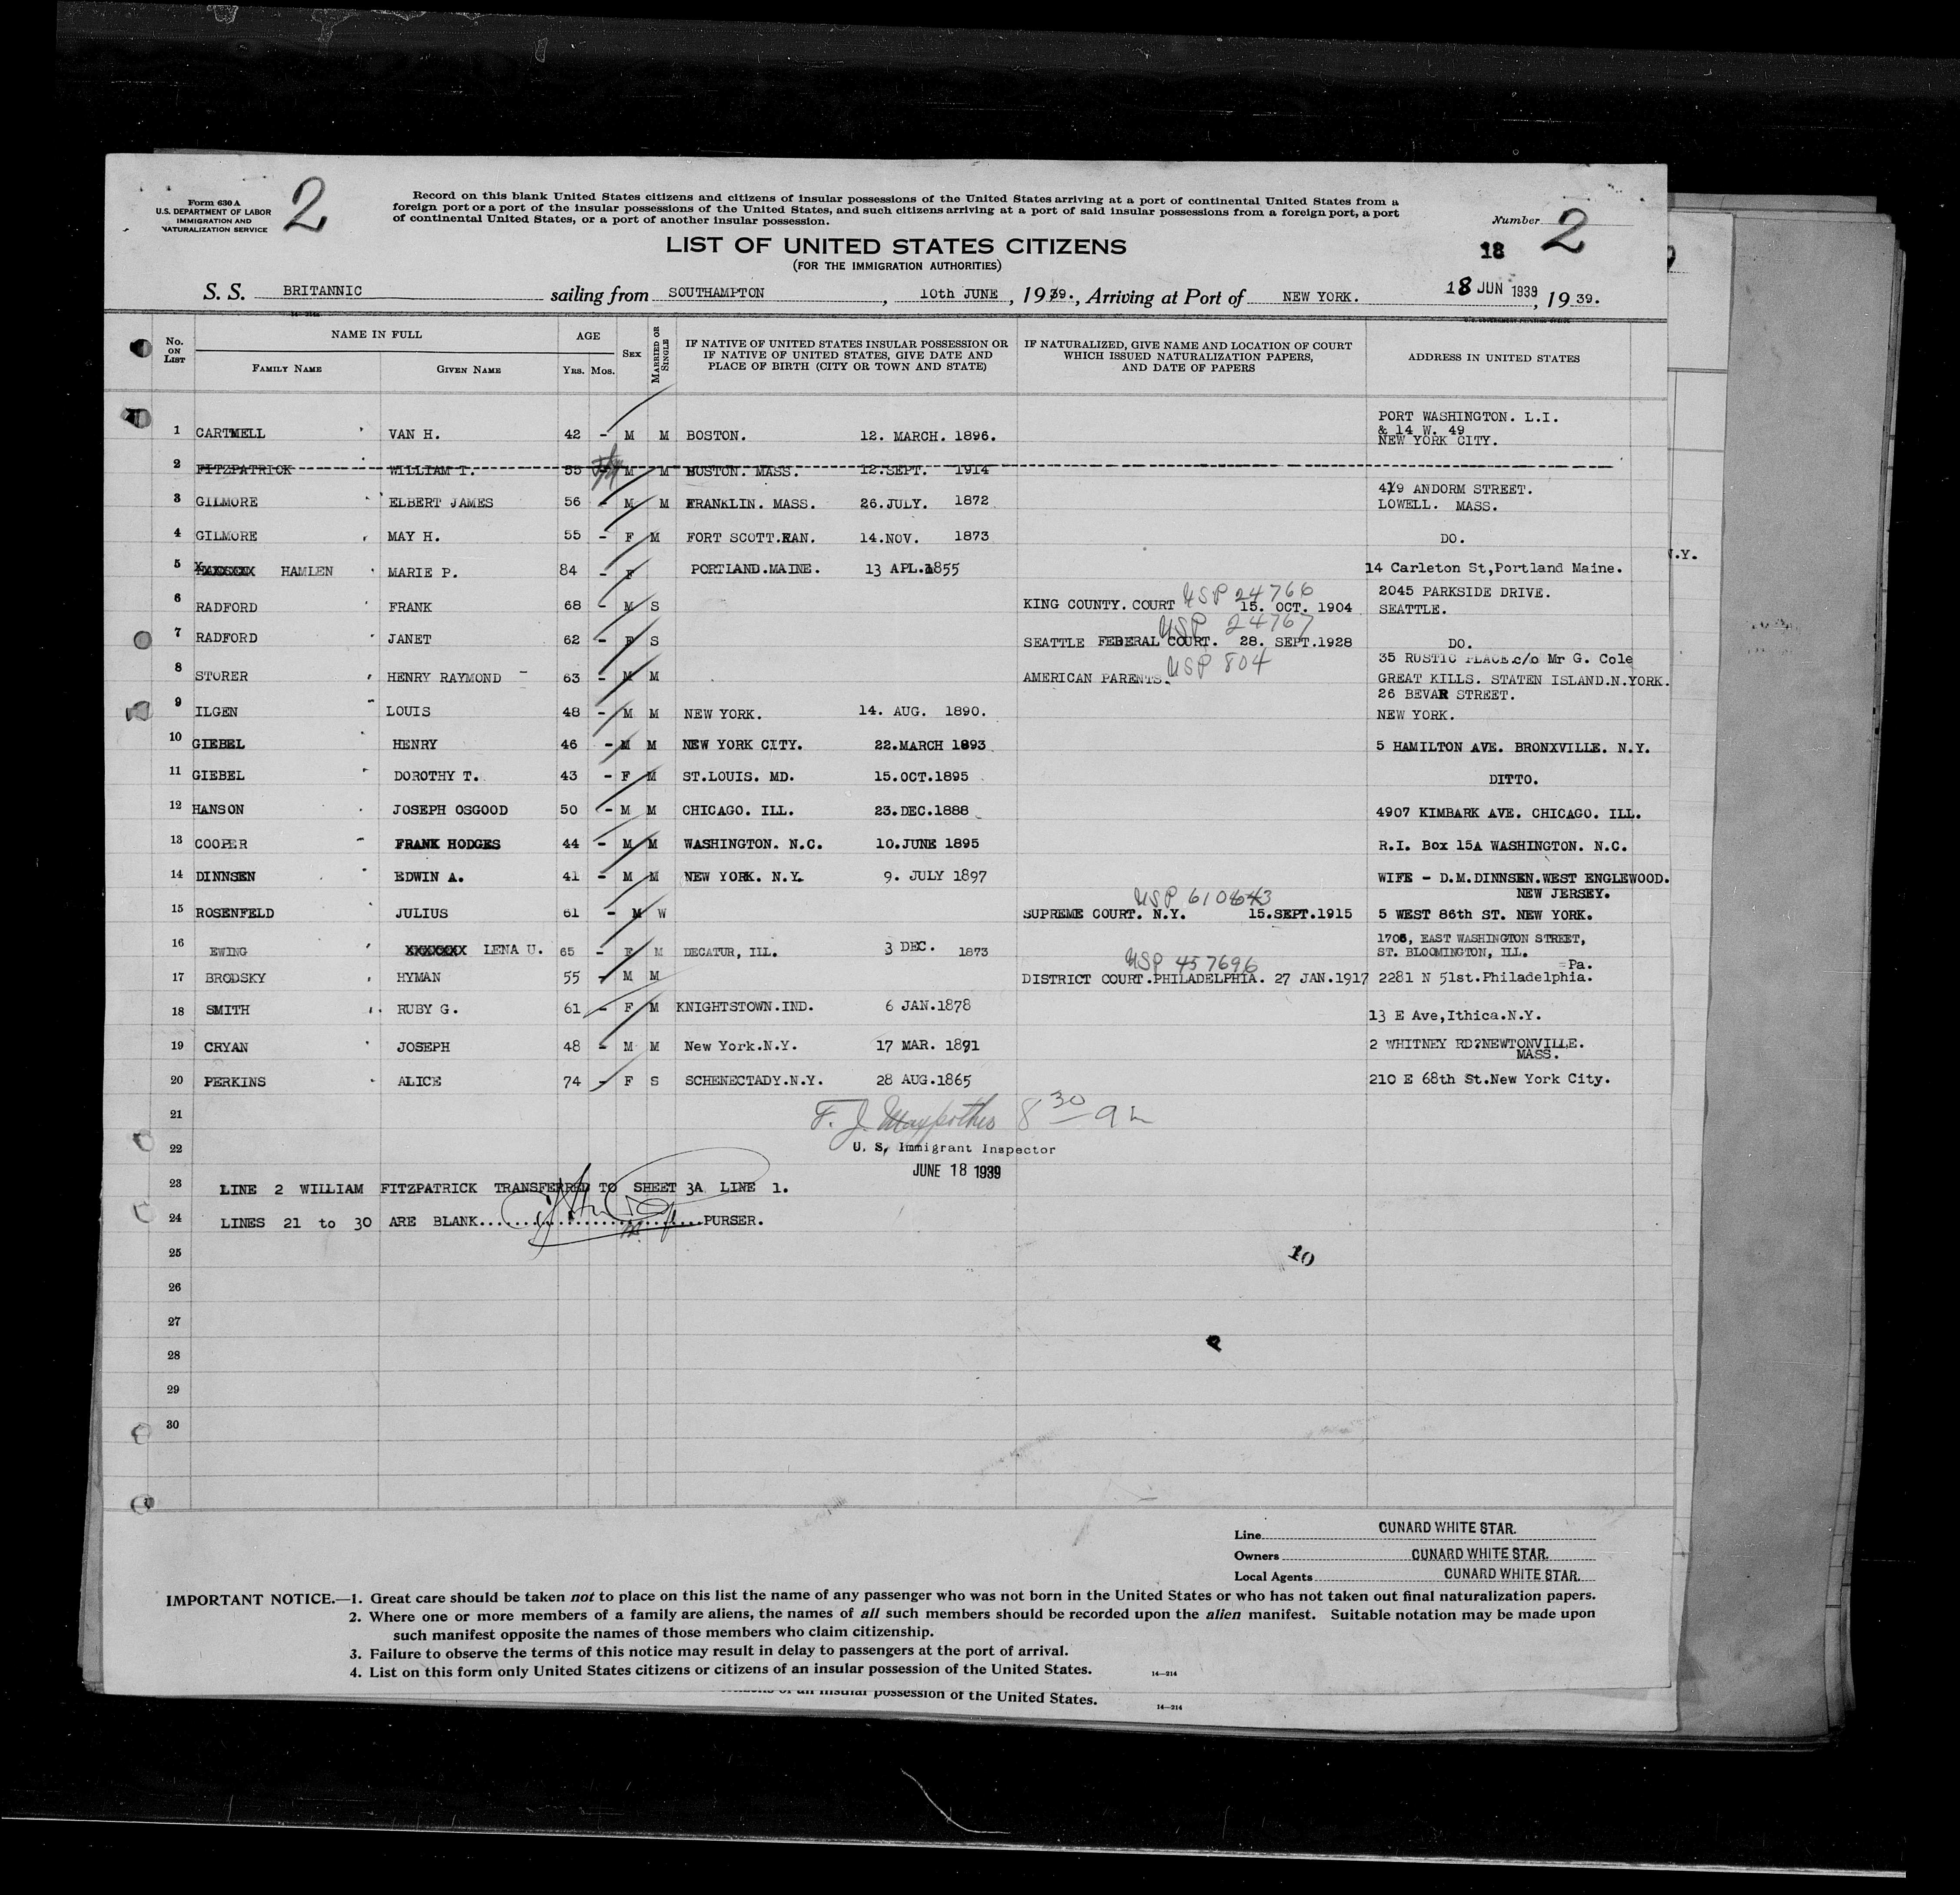 Form 630 A
U.S. DEPARTMENT OF LABOR
IMMIGRATION AND
NATURALIZATION SERVICE
2
Record on this blank United States citizens and citizens of insular possessions of the United States arriving at a port of continental United States from a
foreign port or a port of the insular possessions of the United States, and such citizens arriving at a port of said insular possessions from a foreign port, a port
of continental United States, or a port of another insular possession.
Number 2
18
LIST OF UNITED STATES CITIZENS
(FOR THE IMMIGRATION AUTHORITIES)
S. S. BRITANNIC sailing from SOUTHAMPTON, 10th JUNE, 1939., Arriving at Port of NEW YORK. 18 JUN 1939, 1939.
No. ON LIST NAME IN FULL FAMILY NAME GIVEN NAME AGE YRS. MOS. SEX MARRIED OR SINGLE IF NATIVE OF UNITED STATES INSULAR POSSESSION OR IF NATIVE OF UNITED STATES, GIVE DATE AND PLACE OF BIRTH (CITY OR TOWN AND STATE) IF NATURALIZED, GIVE NAME AND LOCATION OF COURT WHICH ISSUED NATURALIZATION PAPERS, AND DATE OF PAPERS ADDRESS IN UNITED STATES
1 CARTMELL VAN H. 42 - M M BOSTON. 12. MARCH. 1896. PORT WASHINGTON. L.I. & 14 W. 49 NEW YORK CITY.
2 FITZPATRICK WILLIAM T. 55 M M BOSTON. MASS. 12.SEPT. 1914
3 GILMORE ELBERT JAMES 56 - M M FRANKLIN. MASS. 26.JULY. 1872 419 ANDORM STREET. LOWELL. MASS.
4 GILMORE MAY H. 55 - F M FORT SCOTT.KAN. 14.NOV. 1873 DO.
5 XXXXXXX HAMLEN MARIE P. 84 - F PORTLAND.MAINE. 13 APL.1855 14 Carleton St,Portland Maine.
6 RADFORD FRANK 68 - M S KING COUNTY. COURT USP 24766 15. OCT. 1904 2045 PARKSIDE DRIVE. SEATTLE.
7 RADFORD JANET 62 - F S SEATTLE FEDERAL COURT. USP 24767 28. SEPT.1928 DO.
8 STORER HENRY RAYMOND - 63 - M M AMERICAN PARENTS. USP 804 35 RUSTIC PLACE.c/o Mr G. Cole GREAT KILLS. STATEN ISLAND.N.YORK.
9 ILGEN LOUIS 48 - M M NEW YORK. 14. AUG. 1890. 26 BEVAR STREET. NEW YORK.
10 GIEBEL HENRY 46 - M M NEW YORK CITY. 22.MARCH 1893 5 HAMILTON AVE. BRONXVILLE. N.Y.
11 GIEBEL DOROTHY T. 43 - F M ST.LOUIS. MD. 15.OCT.1895 DITTO.
12 HANSON JOSEPH OSGOOD 50 - M M CHICAGO. ILL. 23.DEC.1888 4907 KIMBARK AVE. CHICAGO. ILL.
13 COOPER FRANK HODGES 44 - M M WASHINGTON. N.C. 10.JUNE 1895 R.I. Box 15A WASHINGTON. N.C.
14 DINNSEN EDWIN A. 41 - M M NEW YORK. N.Y. 9. JULY 1897 WIFE - D.M.DINNSEN.WEST ENGLEWOOD. NEW JERSEY.
15 ROSENFELD JULIUS 61 - M W SUPREME COURT. N.Y. 15.SEPT.1915 5 WEST 86th ST. NEW YORK.
16 EWING XXXXXXX LENA U. 65 - F M DECATUR, ILL. 3 DEC. 1873 1705, EAST WASHINGTON STREET, ST. BLOOMINGTON, ILL.
17 BRODSKY HYMAN 55 - M M DISTRICT COURT.PHILADELPHIA. USP 457696 27 JAN.1917 2281 N 51st.Philadelphia. =Pa.
18 SMITH RUBY G. 61 - F M KNIGHTSTOWN.IND. 6 JAN.1878 13 E Ave,Ithica.N.Y.
19 CRYAN JOSEPH 48 - M M New York.N.Y. 17 MAR. 1891 2 WHITNEY RD?NEWTONVILLE. MASS.
20 PERKINS ALICE 74 - F S SCHENECTADY.N.Y. 28 AUG.1865 210 E 68th St.New York City.
21 F. J. 8 30 a
22 U. S. Immigrant Inspector
JUNE 18 1939
23 LINE 2 WILLIAM FITZPATRICK TRANSFERRED TO SHEET 3A LINE 1.
24 LINES 21 to 30 ARE BLANK...........................PURSER.
25
10
26
27
28
29
30
N.Y.
Line CUNARD WHITE STAR.
Owners CUNARD WHITE STAR.
Local Agents CUNARD WHITE STAR.
IMPORTANT NOTICE.—1. Great care should be taken not to place on this list the name of any passenger who was not born in the United States or who has not taken out final naturalization papers.
2. Where one or more members of a family are aliens, the names of all such members should be recorded upon the alien manifest. Suitable notation may be made upon
such manifest opposite the names of those members who claim citizenship.
3. Failure to observe the terms of this notice may result in delay to passengers at the port of arrival.
4. List on this form only United States citizens or citizens of an insular possession of the United States.
14—214
possession of the United States.
14—214